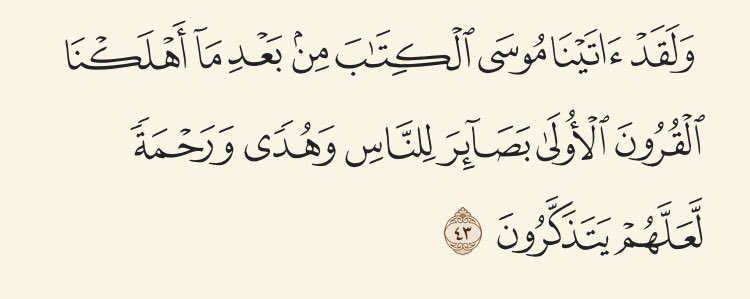 وَلَقَدۡ ءَاتَيۡنَا مُوسَى ٱلۡكِتَٰبَ مِنۢ بَعۡدِ مَآ أَهۡلَكۡنَا
ٱلۡقُرُونَ ٱلۡأُولَىٰ بَصَآئِرَ لِلنَّاسِ وَهُدٗى وَرَحۡمَةٗ
لَّعَلَّهُمۡ يَتَذَكَّرُونَ ٤٣